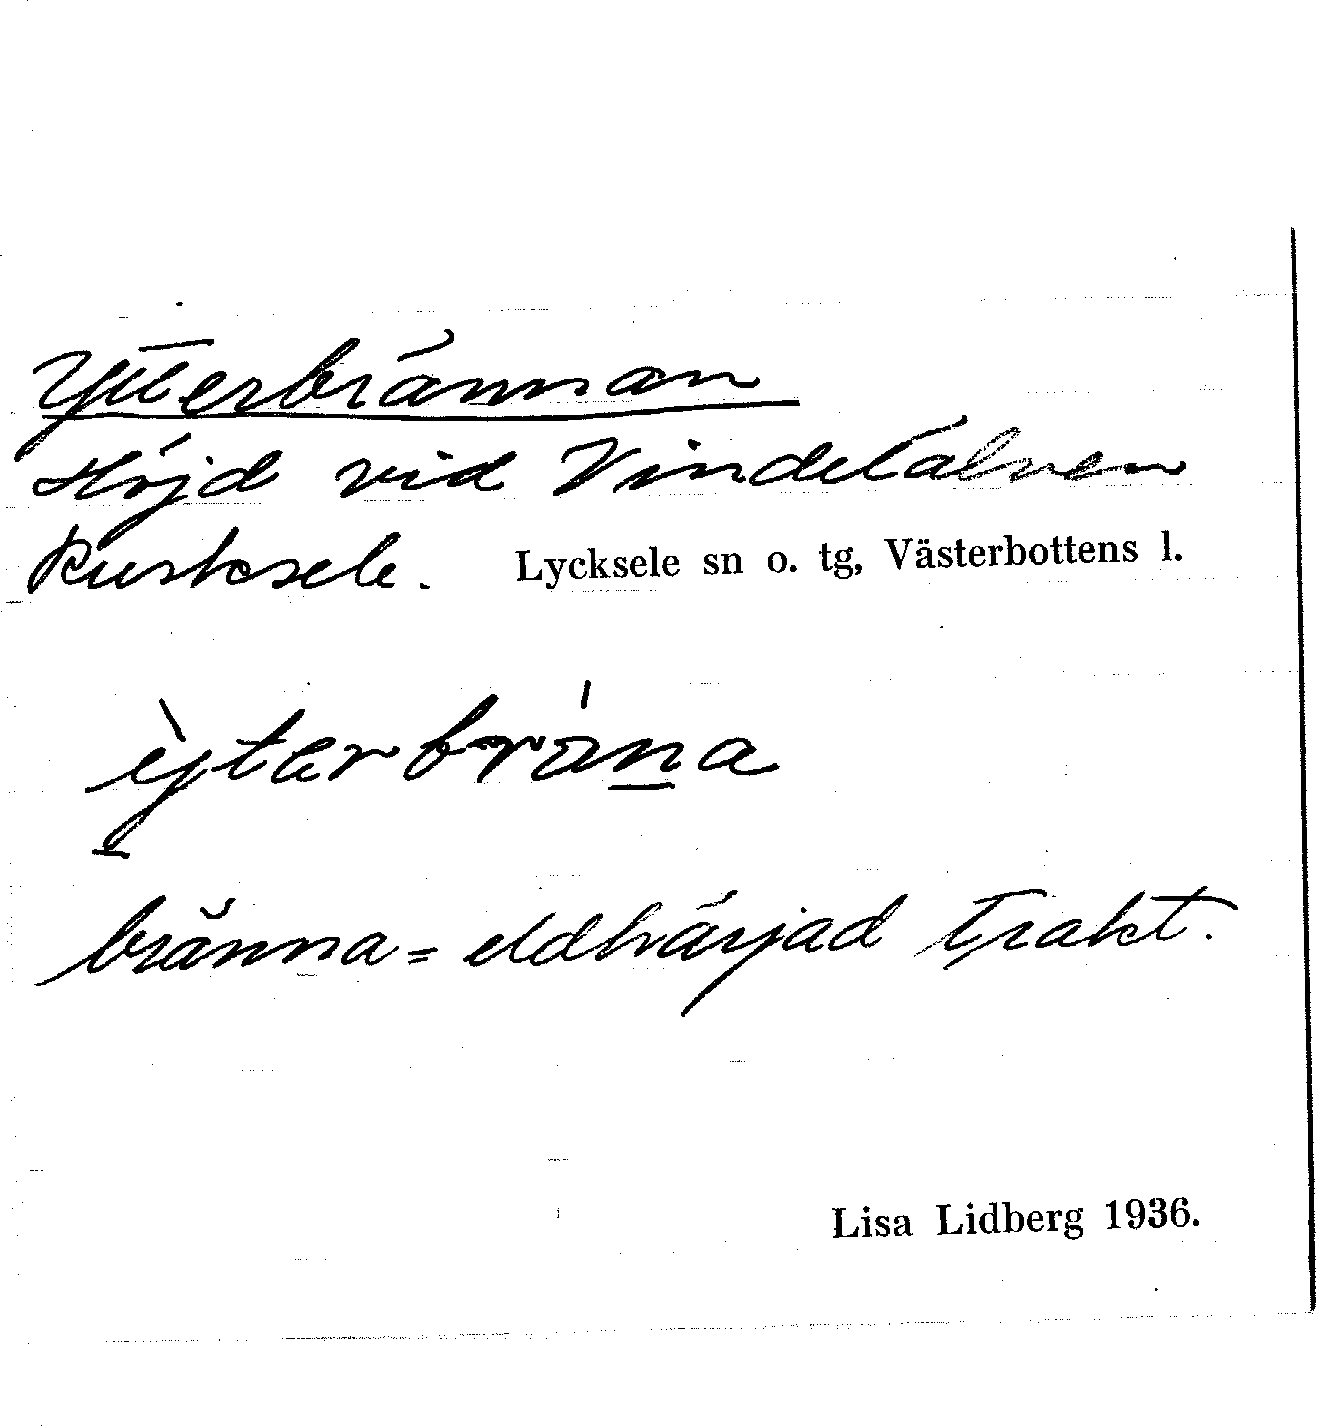 Ytterbrännan
Höjd vid Vindelälven
Rusksele. Lycksele sn o. tg, Västerbottens l.
bränna = eldhärjad trakt.
Lisa Lidberg 1936.